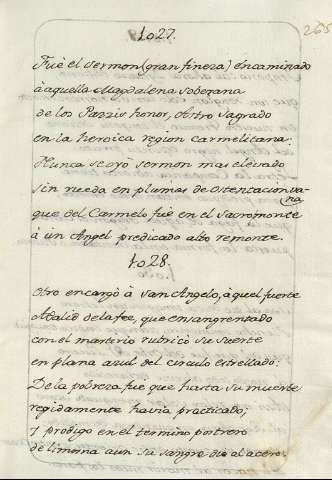 1027.
265
Fuè el sermon (gran fineza) encaminado
à aquella Magdalena soberana
de los Pazzis honor, Astro sagrado
en la heroica region carmelitana.
Nunca se oyò sermon mas elevado
sin rueda en plumas de ostentacion va-
na,
que del Carmelo fuè en el Sacromonte
à un Angel predicado alto remonte.
1028.
Otro encargò à san Angelo, à aquel fuerte
Atalid de la fee, que ensangrentado
con el martirio rubricò su suerte
en plana azul del circulo estrellado:
De la pobreza fuè que hasta su muerte
regidamente havia practicado;
y prodigo en el termino postrero
de limosna aun su sangre dio al acero.